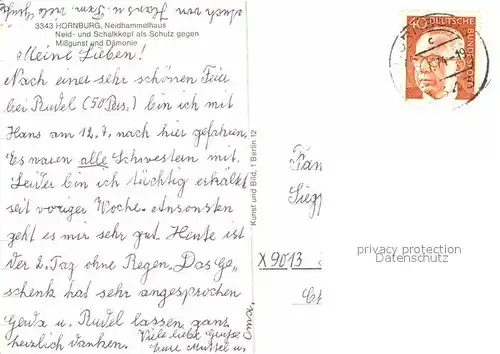 auch von Hans u. Fam. viele
Grüße
3343 HORNBURG, Neidhammelhaus
Neid- und Schalkkopf als Schutz gegen
Mißgunst und Dämonie
Meine Lieben!
Nach einer sehr schönen Feier
bei Rudel (50 Pers.) bin ich mit
Hans am 12.7. nach hier gefahren.
Es waren alle Schwestern mit.
Leider bin ich tüchtig erkältet
seit voriger Woche. Ansonsten
geht es mir sehr gut. Heute ist
der 2. Tag ohne Regen. Das Ge-
schenk hat sehr angesprochen
Gerda u. Rudel lassen ganz
herzlich danken. Viele liebe Grüße
Eure Mutsel u.
Omi
Kunst und Bild, 1 Berlin 12
40 DEUTSCHE BUNDESPOST
c
Fam
Siegf
X 9013
privacy protection
Datenschutz